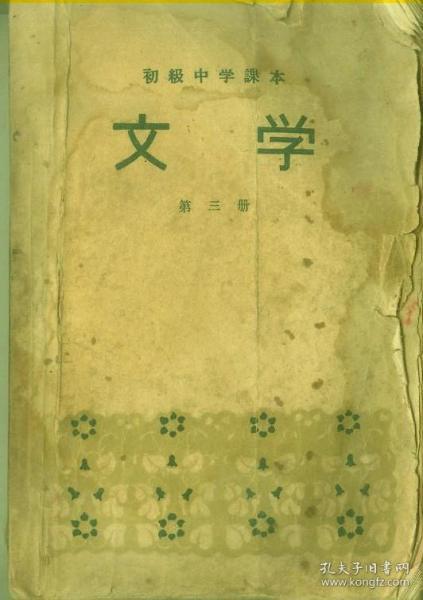 初級中学課本
文学
第三册
孔夫子旧書网
www.kongfz.com